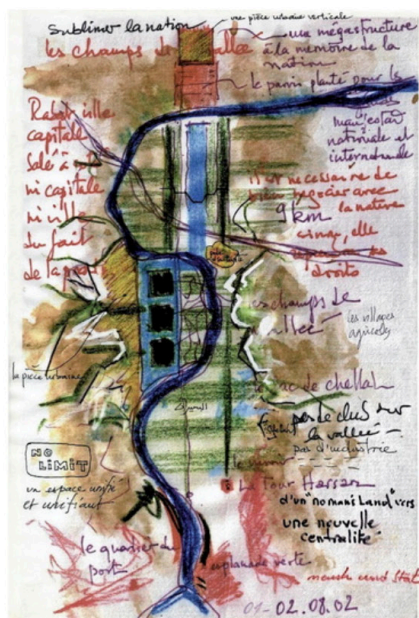 Sublimer la nation
une pièce urbaine verticale
les champs de vallée
une mégastructure
à la mémoire de la
nation
le parvis planté pour les
manifestat
nationale et
internationale
Rabat ville
capitale
Salé
ni capitale
ni vill
du fait
de la
Il est nécessaire de
bien négocier avec
la nature
9 km
sinon, elle
ses
droits
les champs de
vallée
les villages
agricoles
la pièce urbaine
lac de chellah
pas de clubs sur
la vallée
pas d'industrie
NO
LIMIT
un espace unifié
et unifiant
le miroir
à la Tour Hassan
d'un "no man's land" vers
une nouvelle
centralité
le quartier du
port
esplanade verte
02.08.02